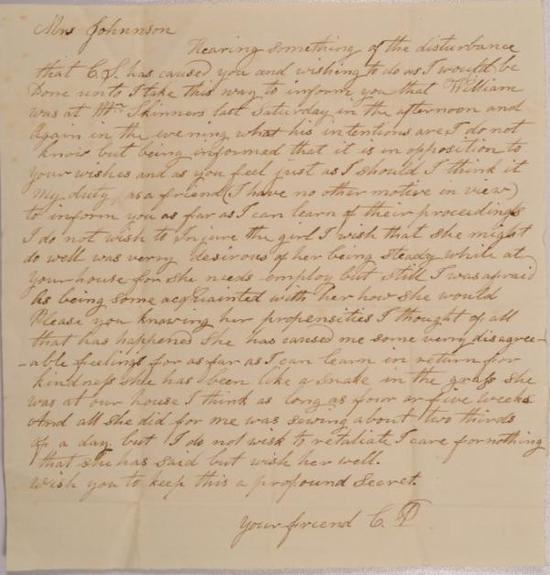 Mrs Johnnson
Hearing something of the disturbance
that C.S. has caused you and wishing to do as I would be
done unto I take this way to inform you that William
was at Mr Skinners last Saturday in the afternoon and
Again in the evening what his intentions are I do not
know but being informed that it is in opposition to
your wishes and as you feel just as I should I think it
My duty, as a friend (I have no other motive in view)
to inform you as far as I can learn of their proceedings
I do not wish to Injure the girl I wish that she might
do well was verry desirous of her being steady while at
your house for she needs employ but still I was afraid
As being some acquainted with her how she would
Please you knowing her propensities I thought of all
that has happened She has caused me some very disagree-
-able feelings for as far as I can learn in return for
kindness she has been like a snake in the grass she
was at our house I think as long as four or five weeks
And all she did for me was sewing about two thirds
of a day, but I do not wish to retaliate I care for nothing
that she has said but wish her well.
Wish you to keep this a profound secret.
Your friend C.